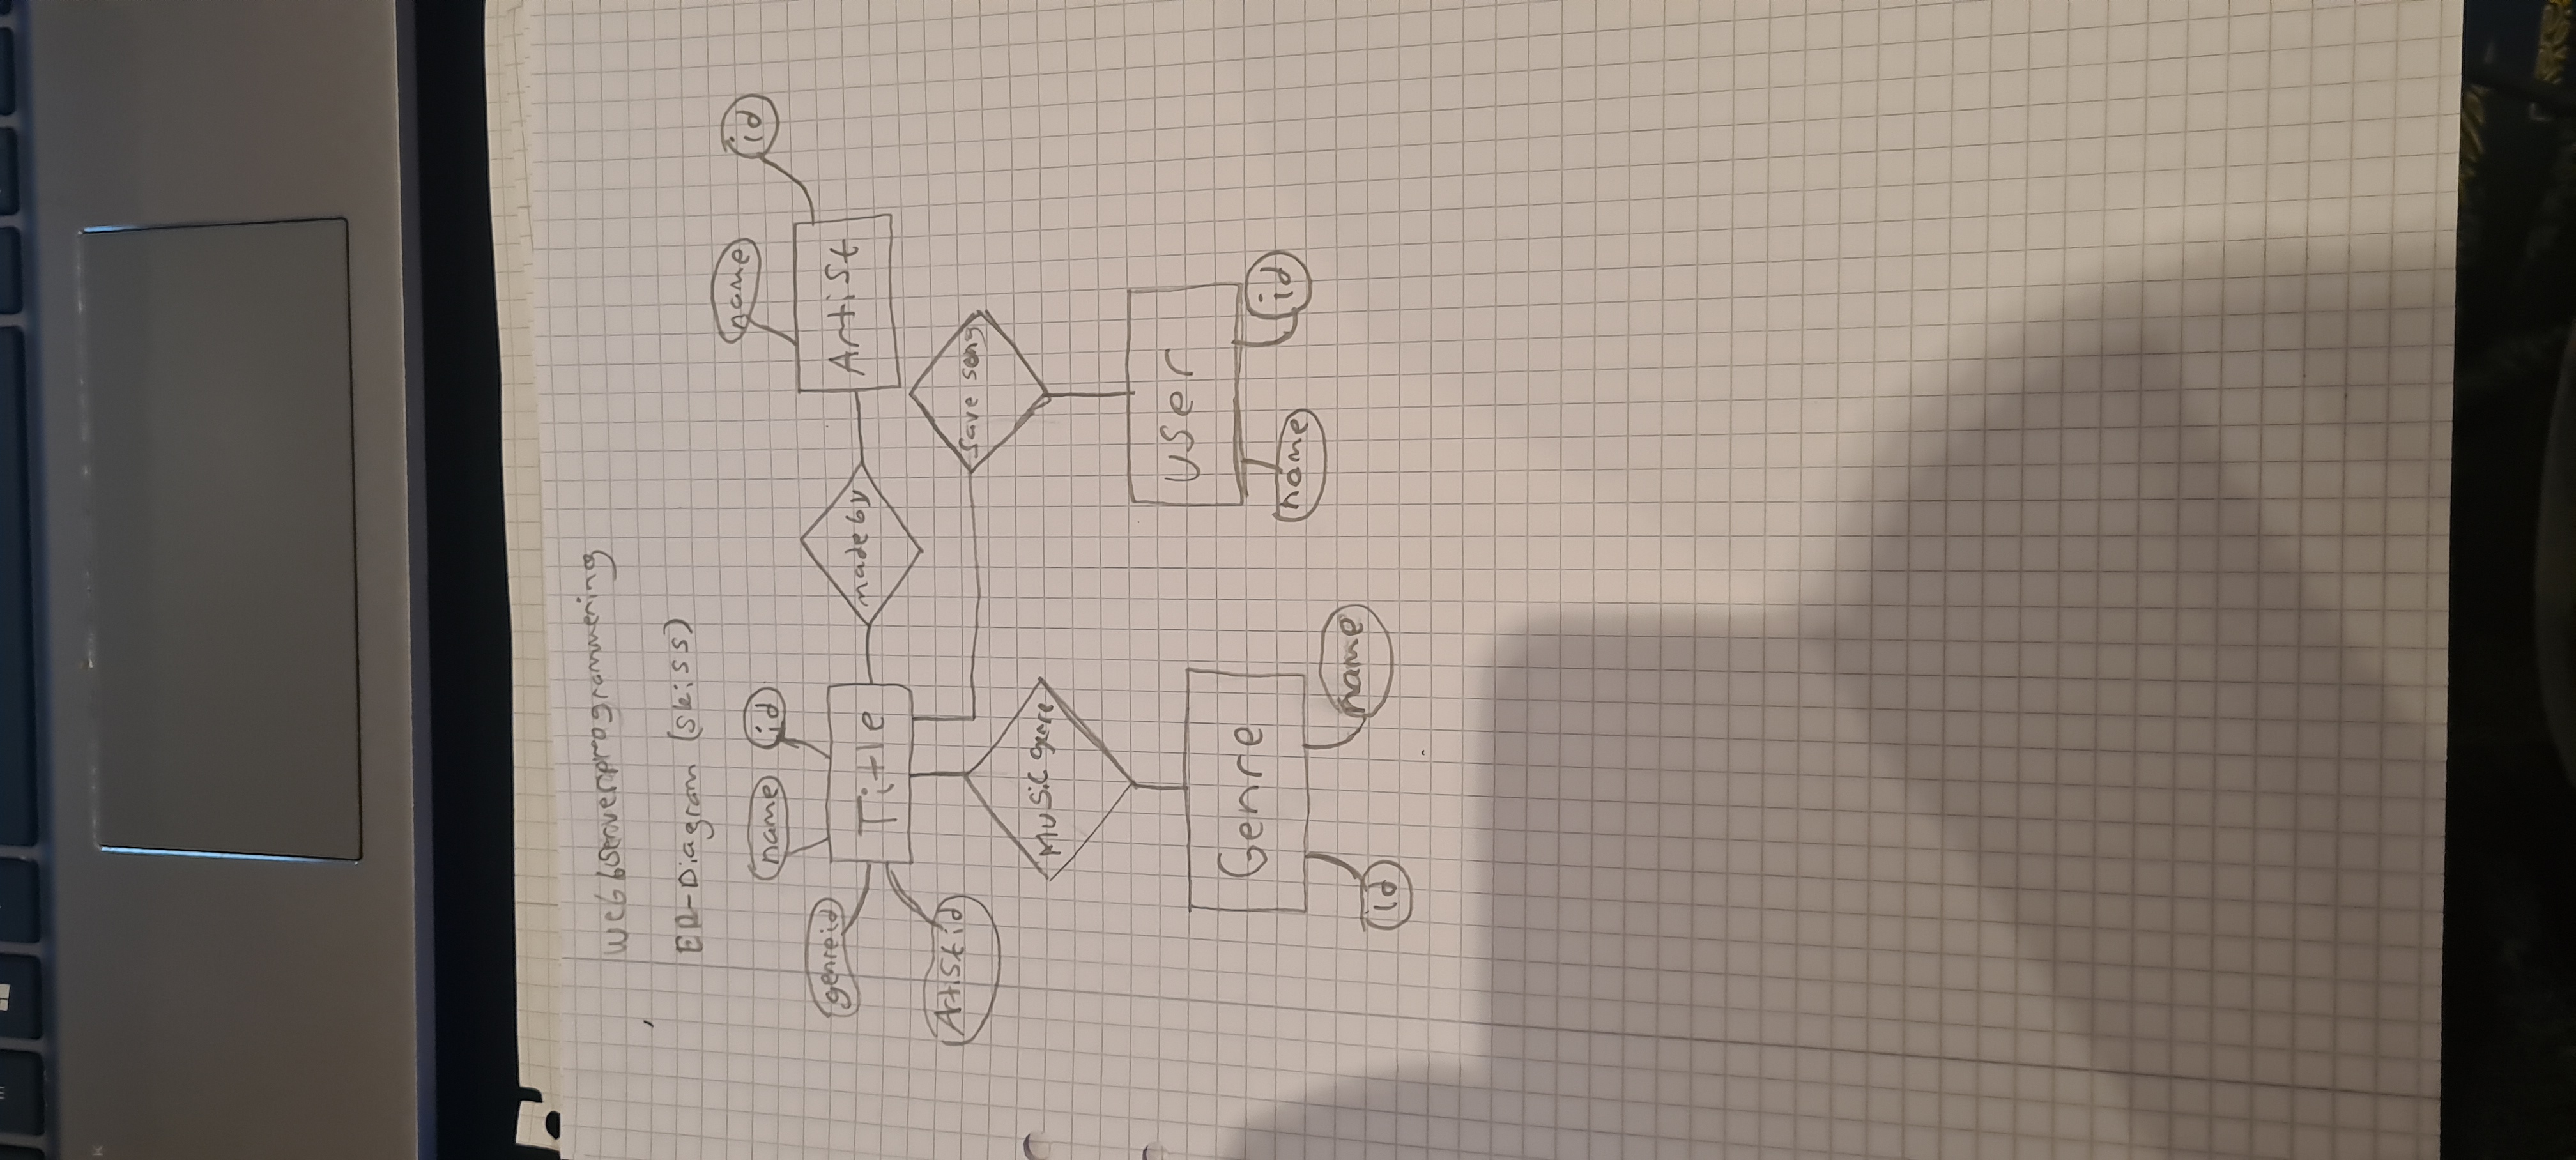 Webbserverprogrammering
ER-Diagram (skiss)
name
id
name
id
genreid
Title
made by
Artist
Artistid
save song
Music genre
user
Genre
name
id
id
name